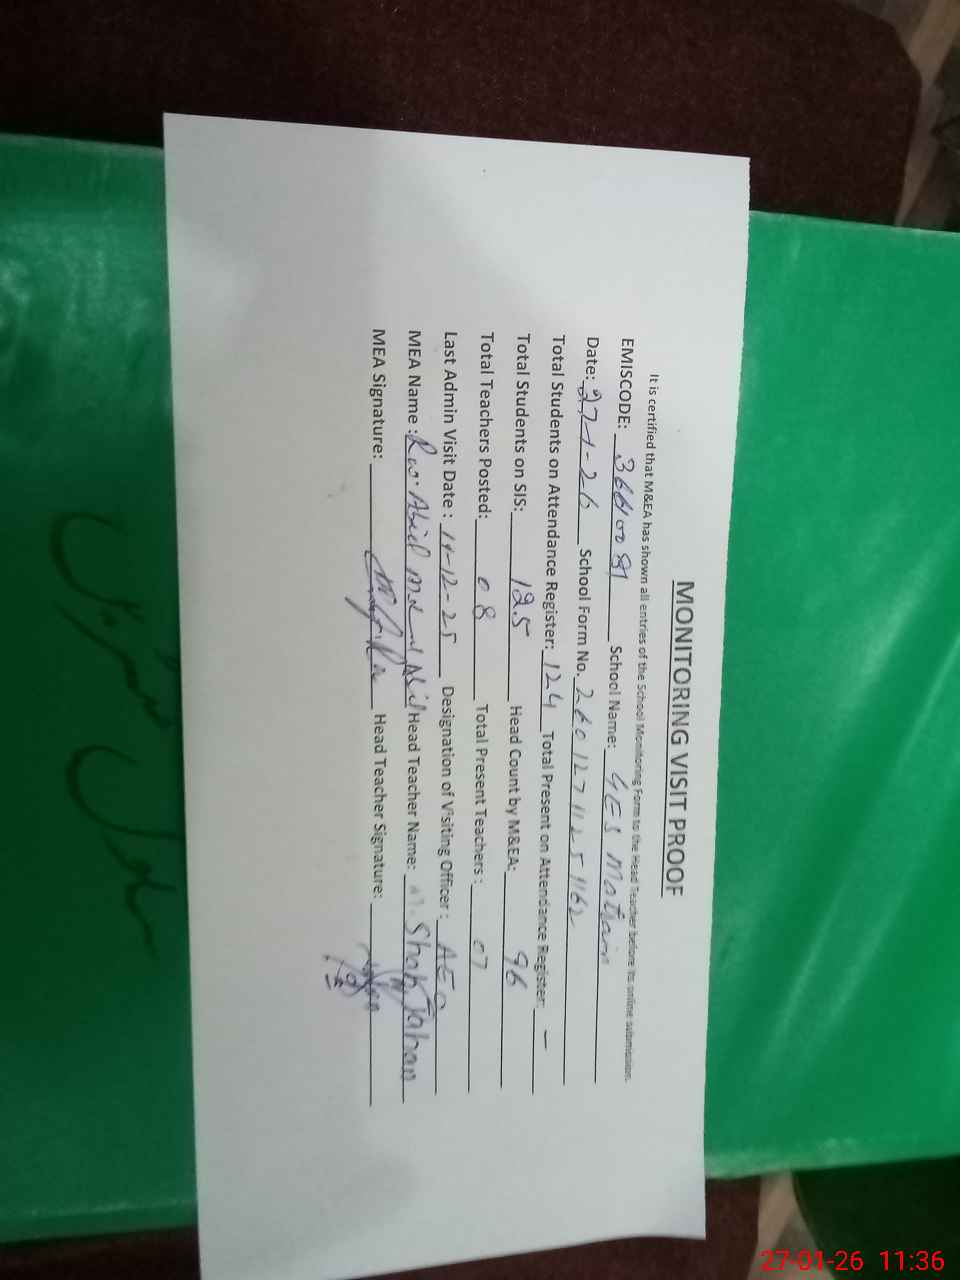 MONITORING VISIT PROOF
It is certified that M&EA has shown all entries of the School Monitoring Form to the Head Teacher before its online submission.
EMISCODE: School Name: GES
Date: 27-1-26 School Form No. 26012711251162
Total Students on Attendance Register: 124 Total Present on Attendance Register: —
Total Students on SIS: 125 Head Count by M&EA: 96
Total Teachers Posted: 08 Total Present Teachers : 07
Last Admin Visit Date : Designation of Visiting Officer : AEO
MEA Name : Abid Head Teacher Name: Shah Jahan
MEA Signature: Head Teacher Signature:
27-01-26 11:36